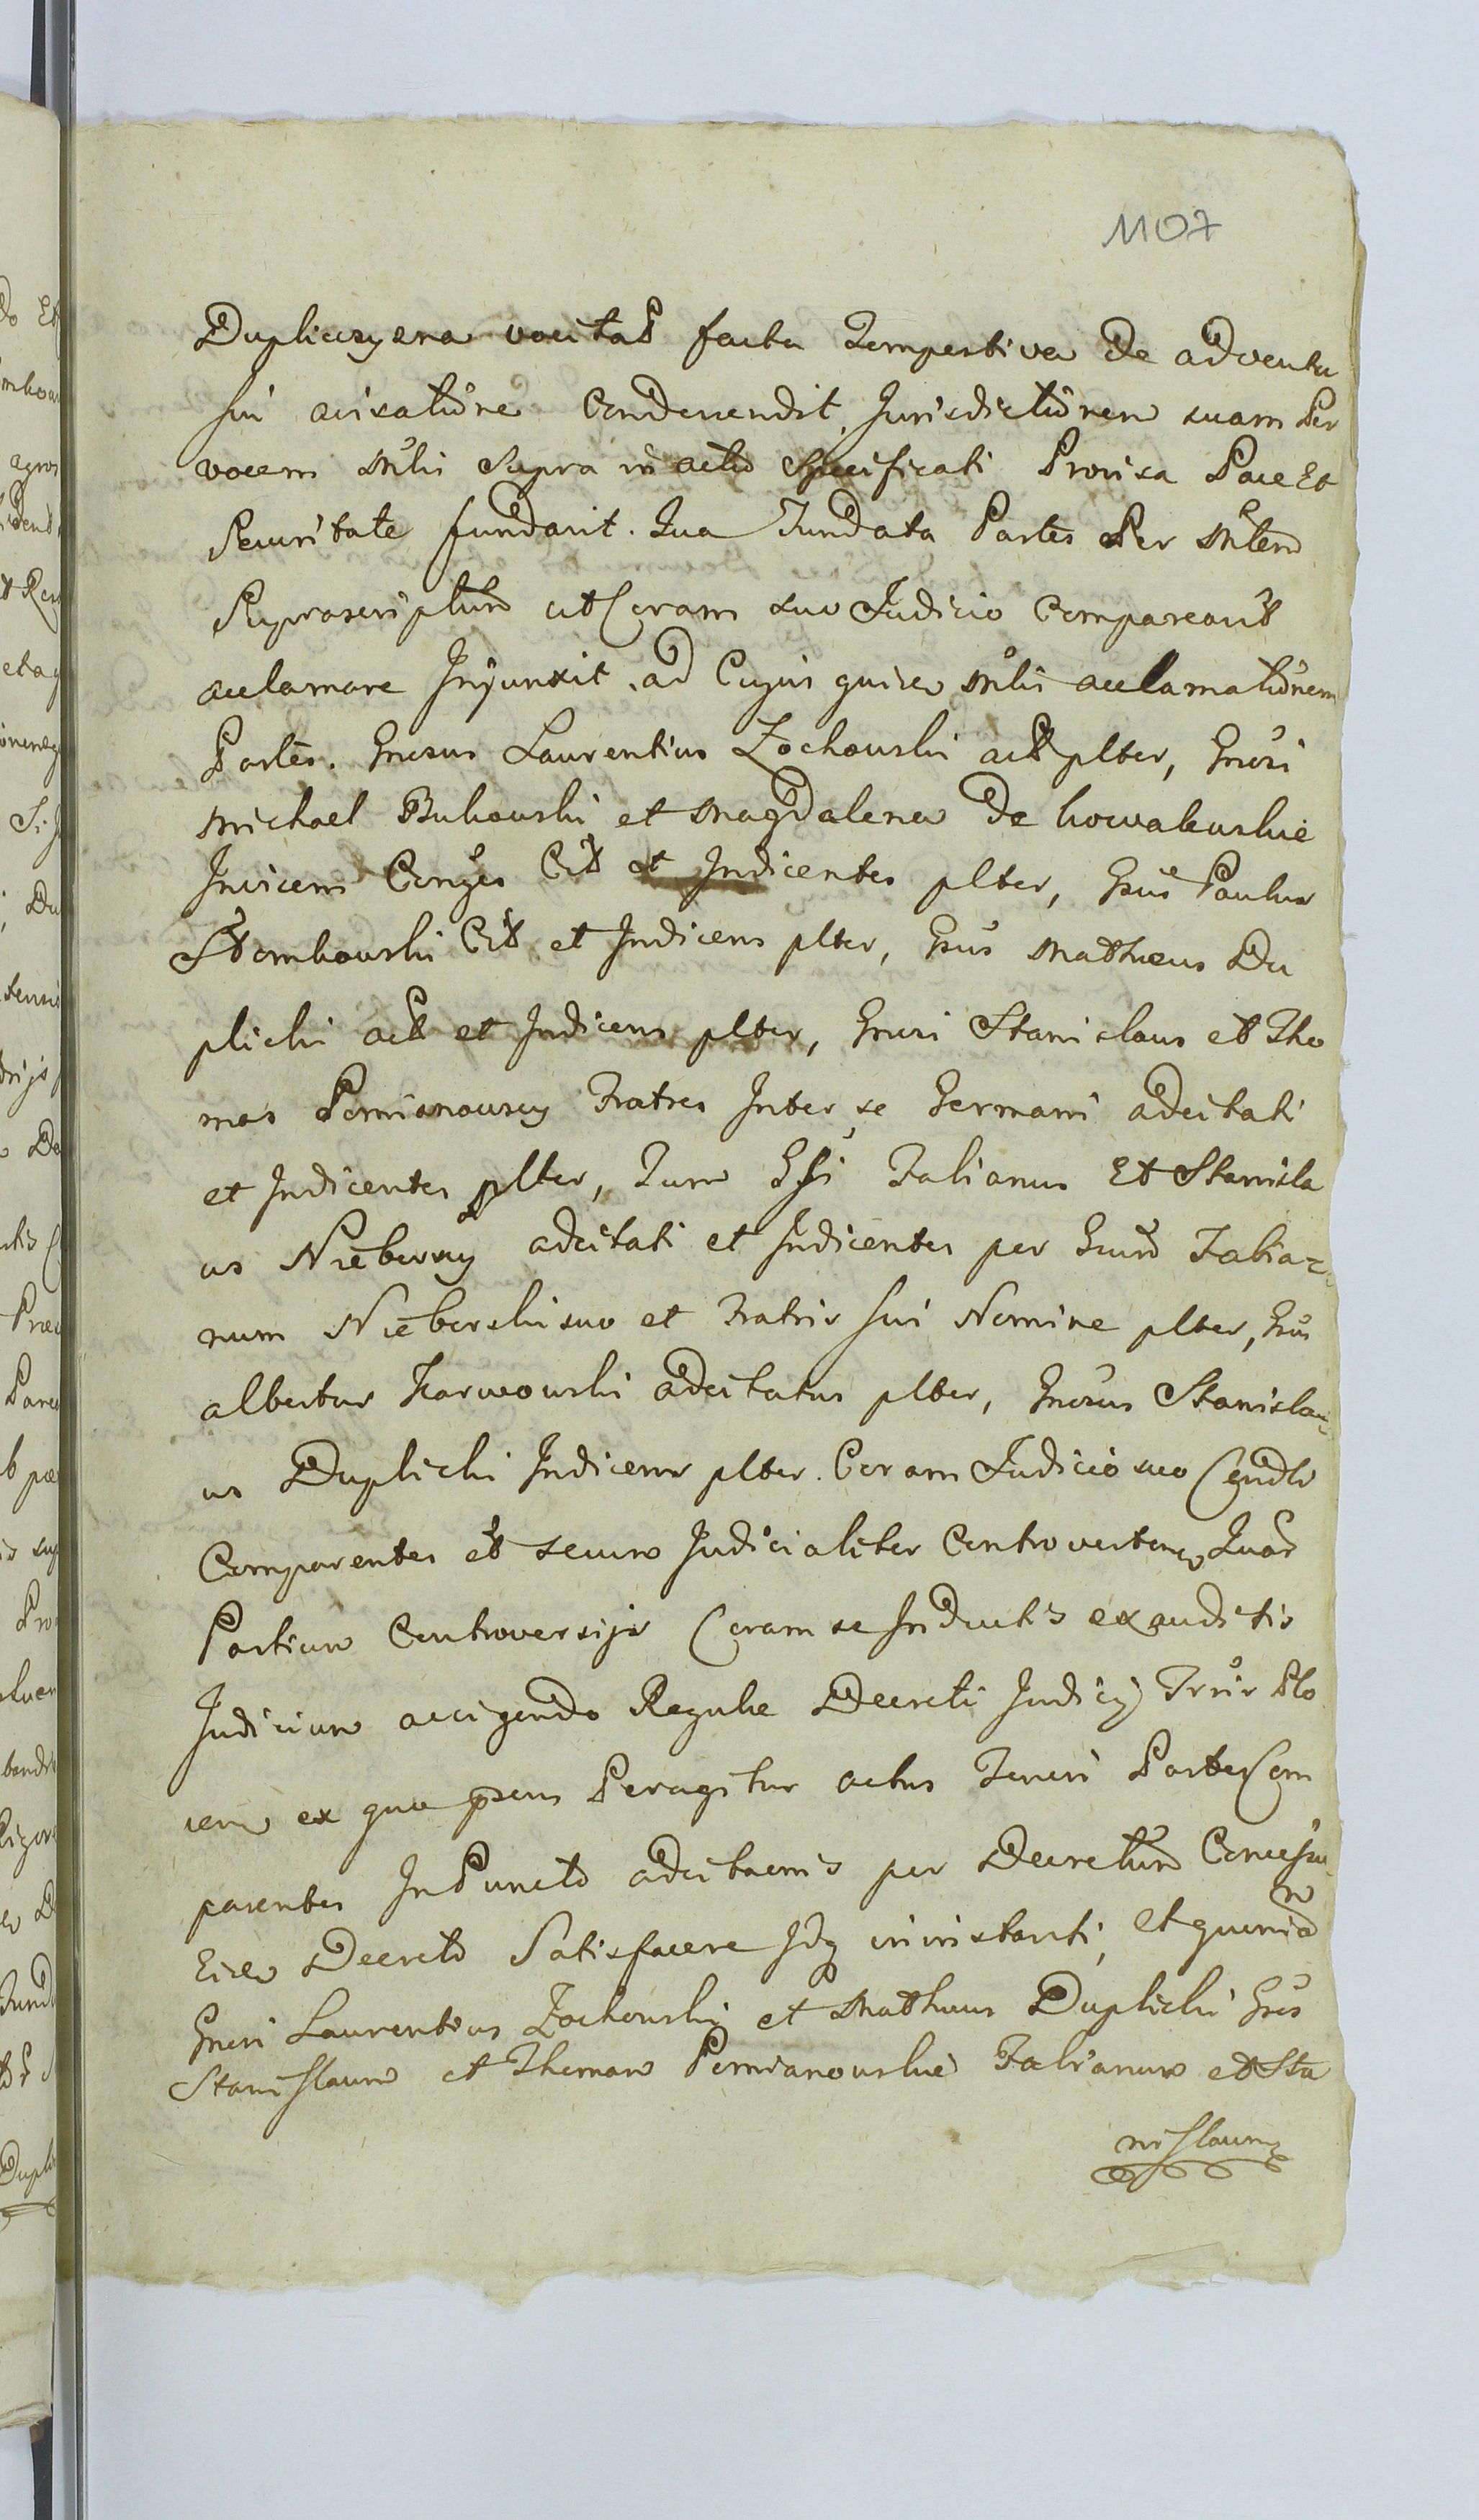 1107
Duplicczyzna vocitat facta Tempestiva De adventu
sui avisatione Condescendit, Jurisdictionem suam Per
vocem Mlis Supra in actu Specificati Provisa Pace Et
Securitate fundavit. Qua Fundata Partes Per Mlem
Suprascriptum ut Coram suo Judicio Compareant
acclamare Injunxit, ad Cujus quidem Mlis acclamationem
Partes. Gnosus Laurentius Zochowski act plter, Gnosi
Michael Bukowski et Magdalena De kowalewskie
Invicem Conjges Cit et Indicentes plter, Gsus Paulus
Dombowski Cit et Indicens plter, Gsus Mathaeus Du
plicki act et Indicens plter, Gnosi Stanislaus et Tho
mas Pomianowscy Fratres Inter se Germani adcitati
et Indicentes plter, Tum Gsi Fabianus Et Stanisla
us Niebercy adcitati et Indicentes per Gsum Fabia=
num Nieberski suo et Fratris sui Nomine plter, Gsus
albertus Karwowski adcitatus plter, Gnosus Stanisla=
us Duplicki Indicens plter. Coram Judicio suo
Comparentes et secum Judicialiter Controvertenes, Quar
Partium Controversijs Coram se Inductis exauditis
Judicium accigendo Regulae Decreti Judicij Trnr Plo
cen ex quo psens Peragitur actus Teneri Partes Com
parentes In Puncto adcitaonis per Decretum
Eidem Decreto Satisfacere Idq in instanti, et quoniam
Gnosi Laurentius Zochowski et Mathaeus Duplicki Gsos
Stanislaum et Thomam Pomianowskie Fabianum et Sta
nislaum